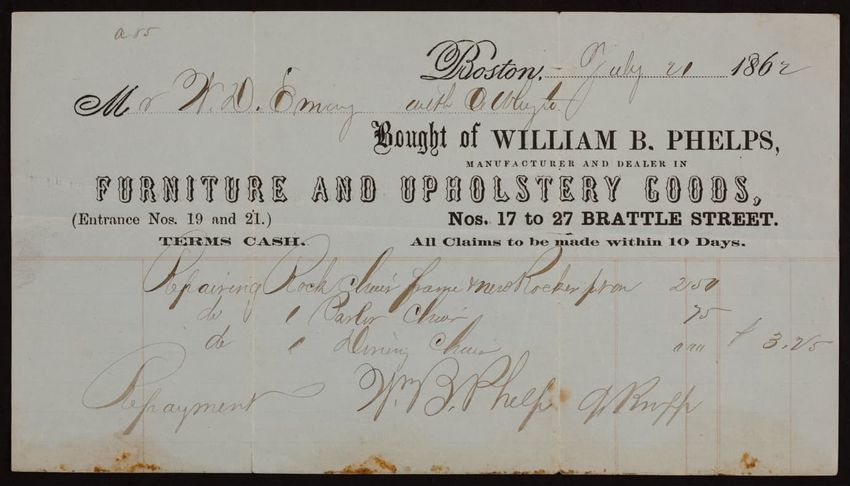 Boston, July 21 1862
Mr W. D. Emery with
Bought of WILLIAM B. PHELPS,
MANUFACTURER AND DEALER IN
FURNITURE AND UPHOLSTERY GOODS,
(Entrance Nos. 19 and 21.) Nos. 17 to 27 BRATTLE STREET.
TERMS CASH. All Claims to be made within 10 Days.
Repairing Rock Chair frame & new Rocker 2 50
do 1 Parlor Chair 75
do 1 Dining Chair $ 3.25
Wm. B. Phelps